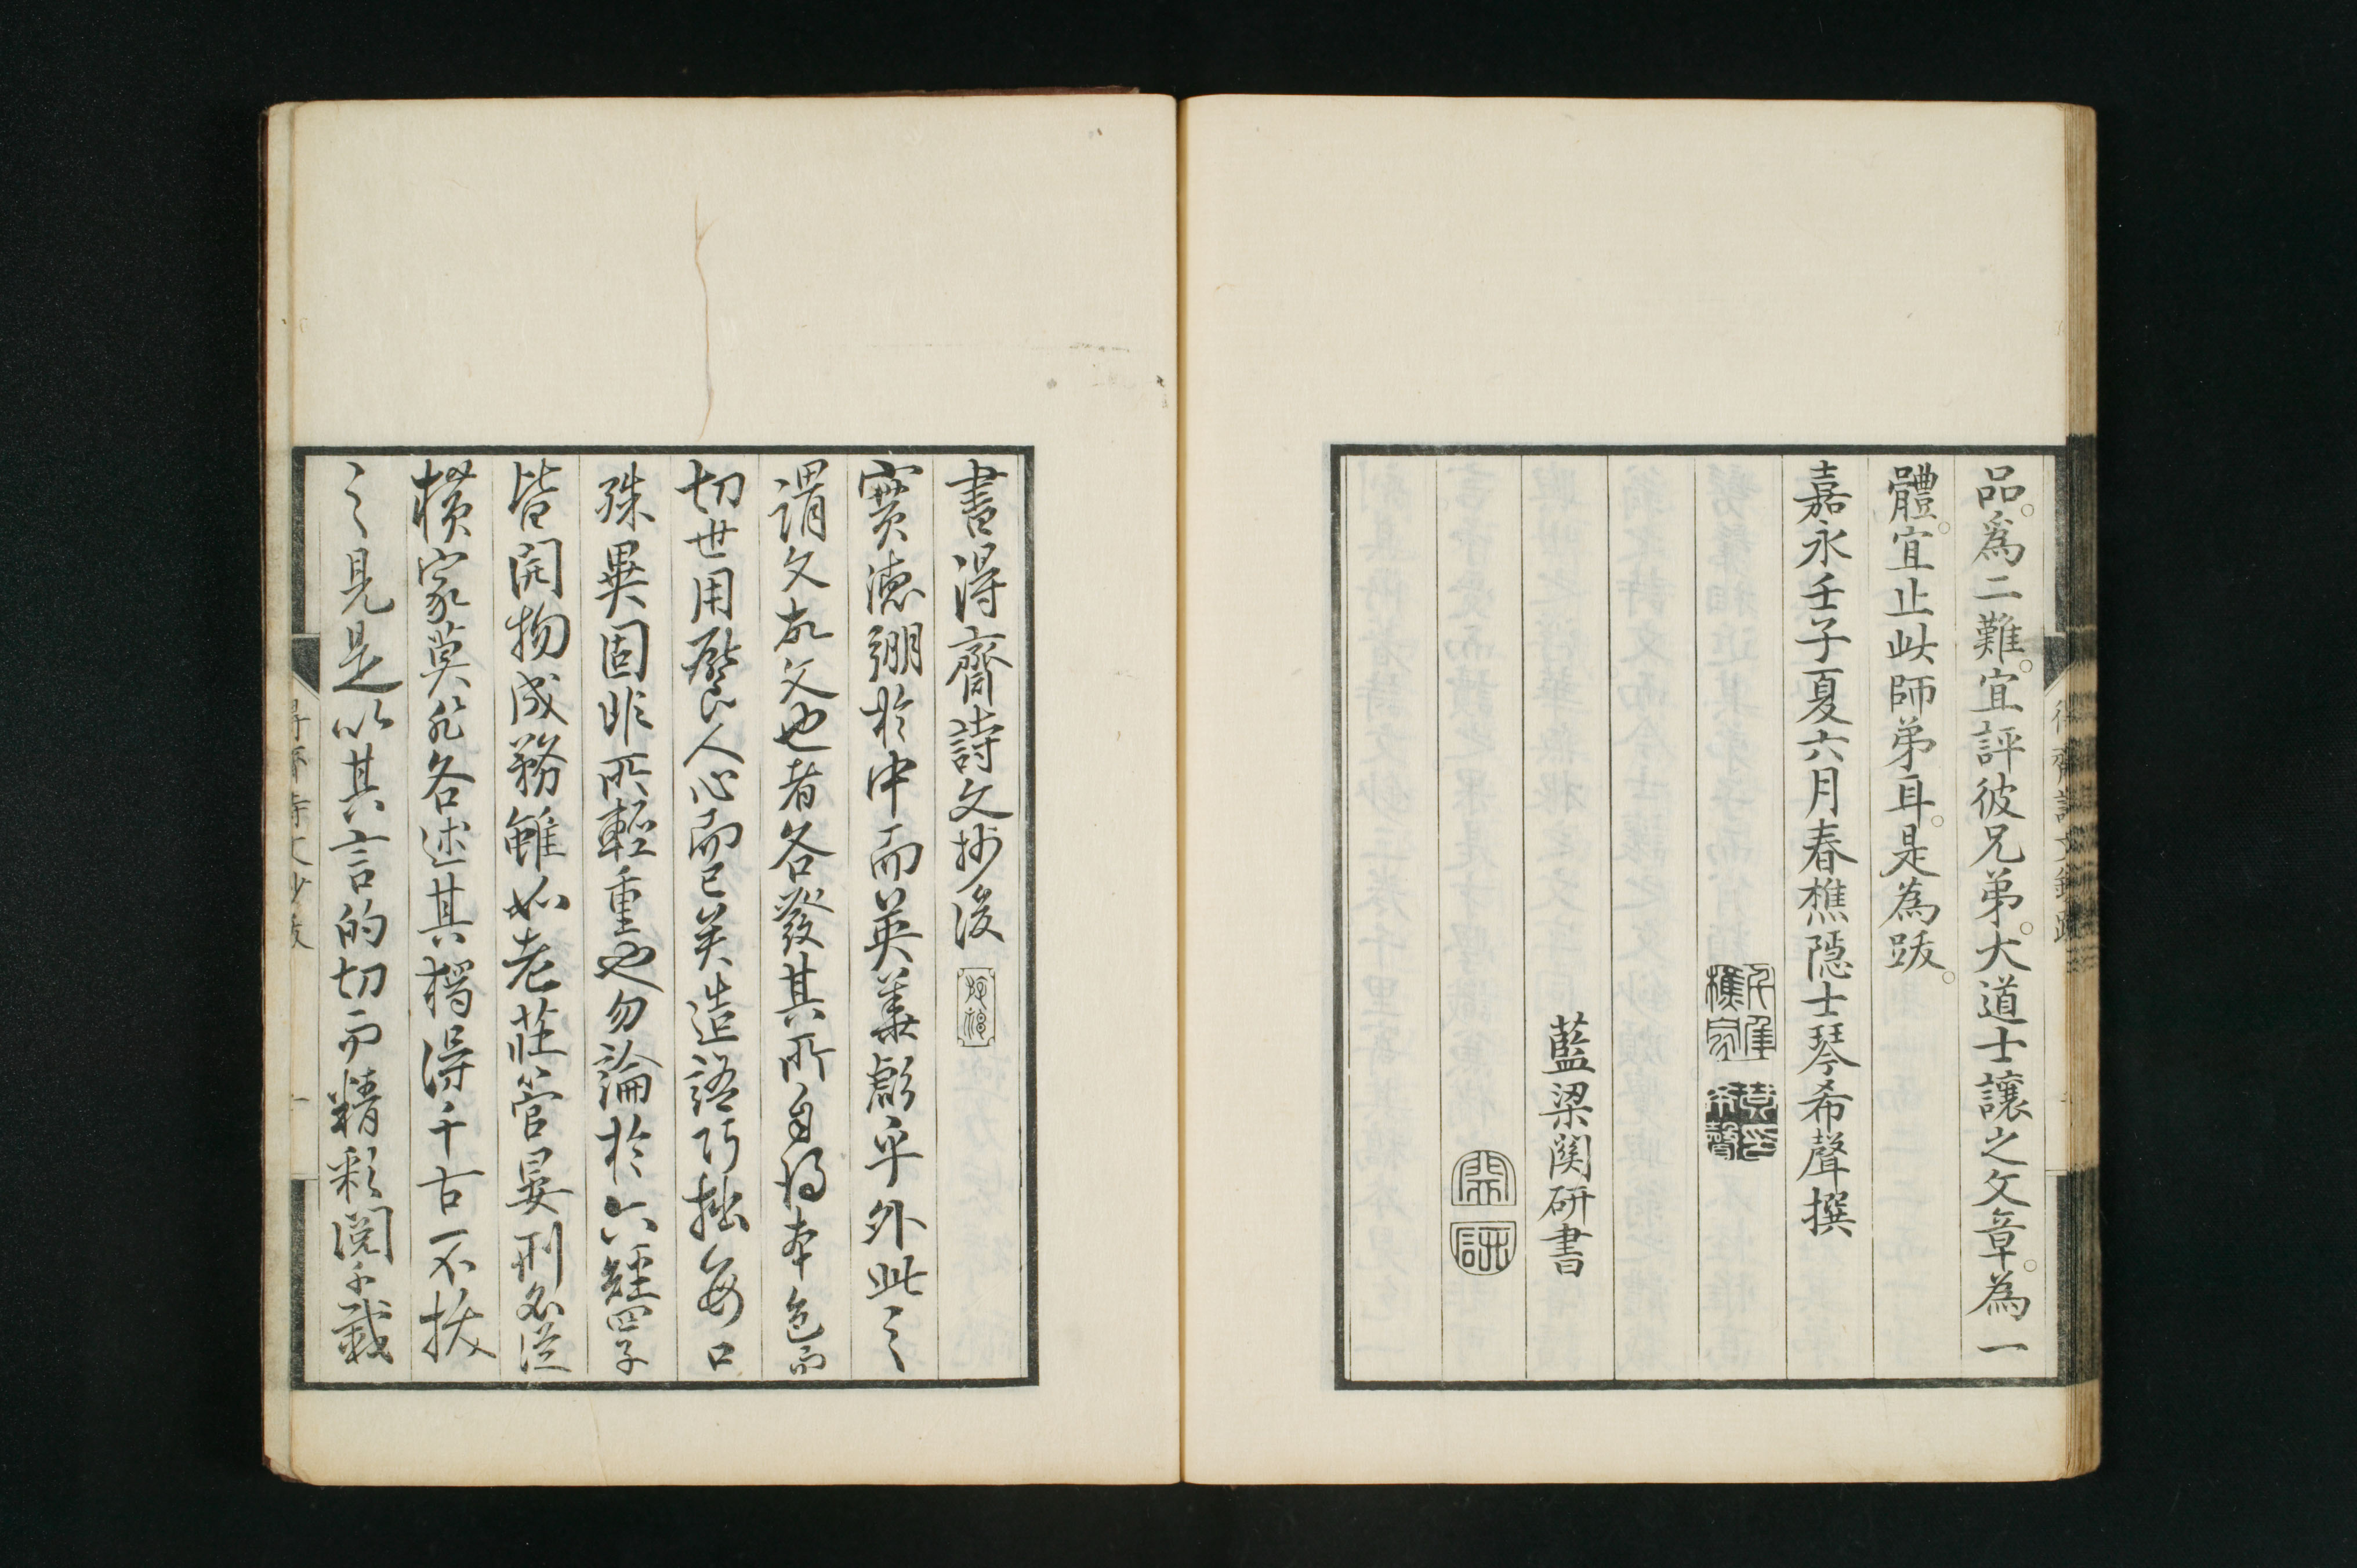 品。爲二難。宜評彼兄弟。大道士讓之文章。為一
體。宜止此師弟耳。是為跋。
嘉永壬子夏六月春樵隠士琴希聲撰
藍梁関研書
書得齋詩文抄後
實德弸於中而英華彪乎外此之
謂文故文也者各發其所自得本色而
切世用厭人心而已矣造語巧拙每口
殊異固非所輕重也勿論於六經四子
皆開物成務雖如老莊管晏刑名從
橫家莫非各述其獨得千古不拔
之見是以其言的切而精彩閱千載